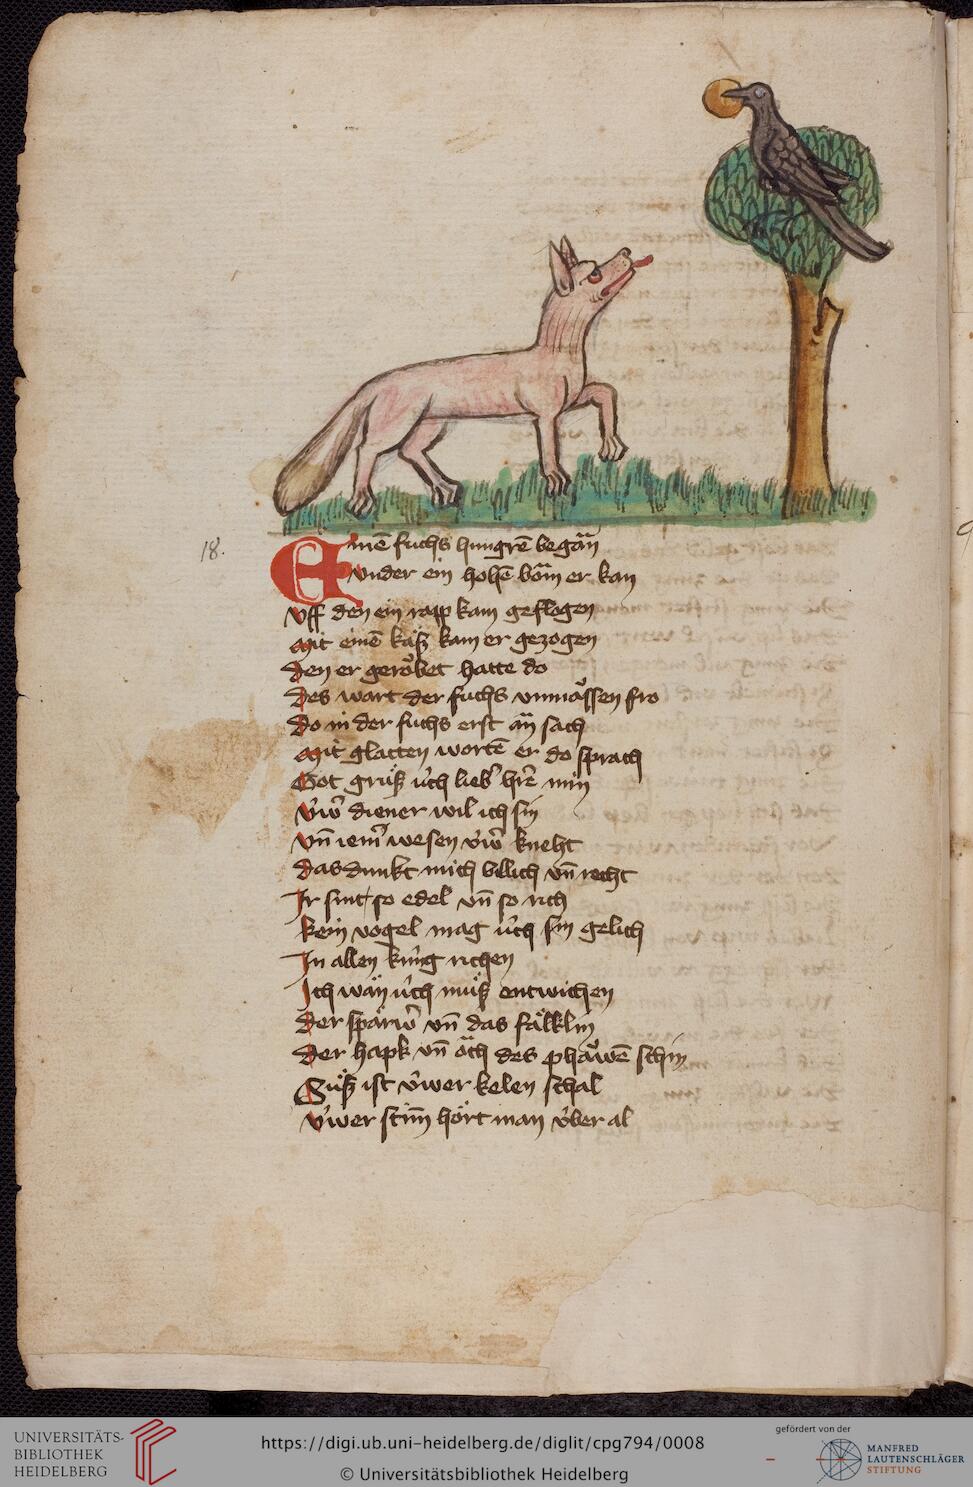 18.
Einē fuchs hungrē began̄
Vnder ein hohē bom̄ er kam
Vff den ein rapp kam geflogen
Mit einē käß kam er gezogen
Den er gerobet hatte do
Des wart der fuchs vnmossen fro
Do in der fuchs erst an̄ sach
Mit glatten wortē er do sprach
Got gruͤß uch lieb' hr̄e min
Vw' diener wil ich sin
Vn̄ iem' wesen vw' kneht
Das dunkt mich billich vn̄ recht
Ir sint so edel vn̄ so rich
Kein vogel mag uch sin gelich
In allen kunig richen
Ich wän uch muß entwichen
Der spärw' vn̄ das fälklin
Der hapk vn̄ och des phawē schin
Suͤß ist vwer kelen schal
Vwer stim̄ hört man vber al
UNIVERSITÄTS-
BIBLIOTHEK
HEIDELBERG
https://digi.ub.uni-heidelberg.de/diglit/cpg794/0008
© Universitätsbibliothek Heidelberg
gefördert von der
MANFRED
LAUTENSCHLÄGER
STIFTUNG